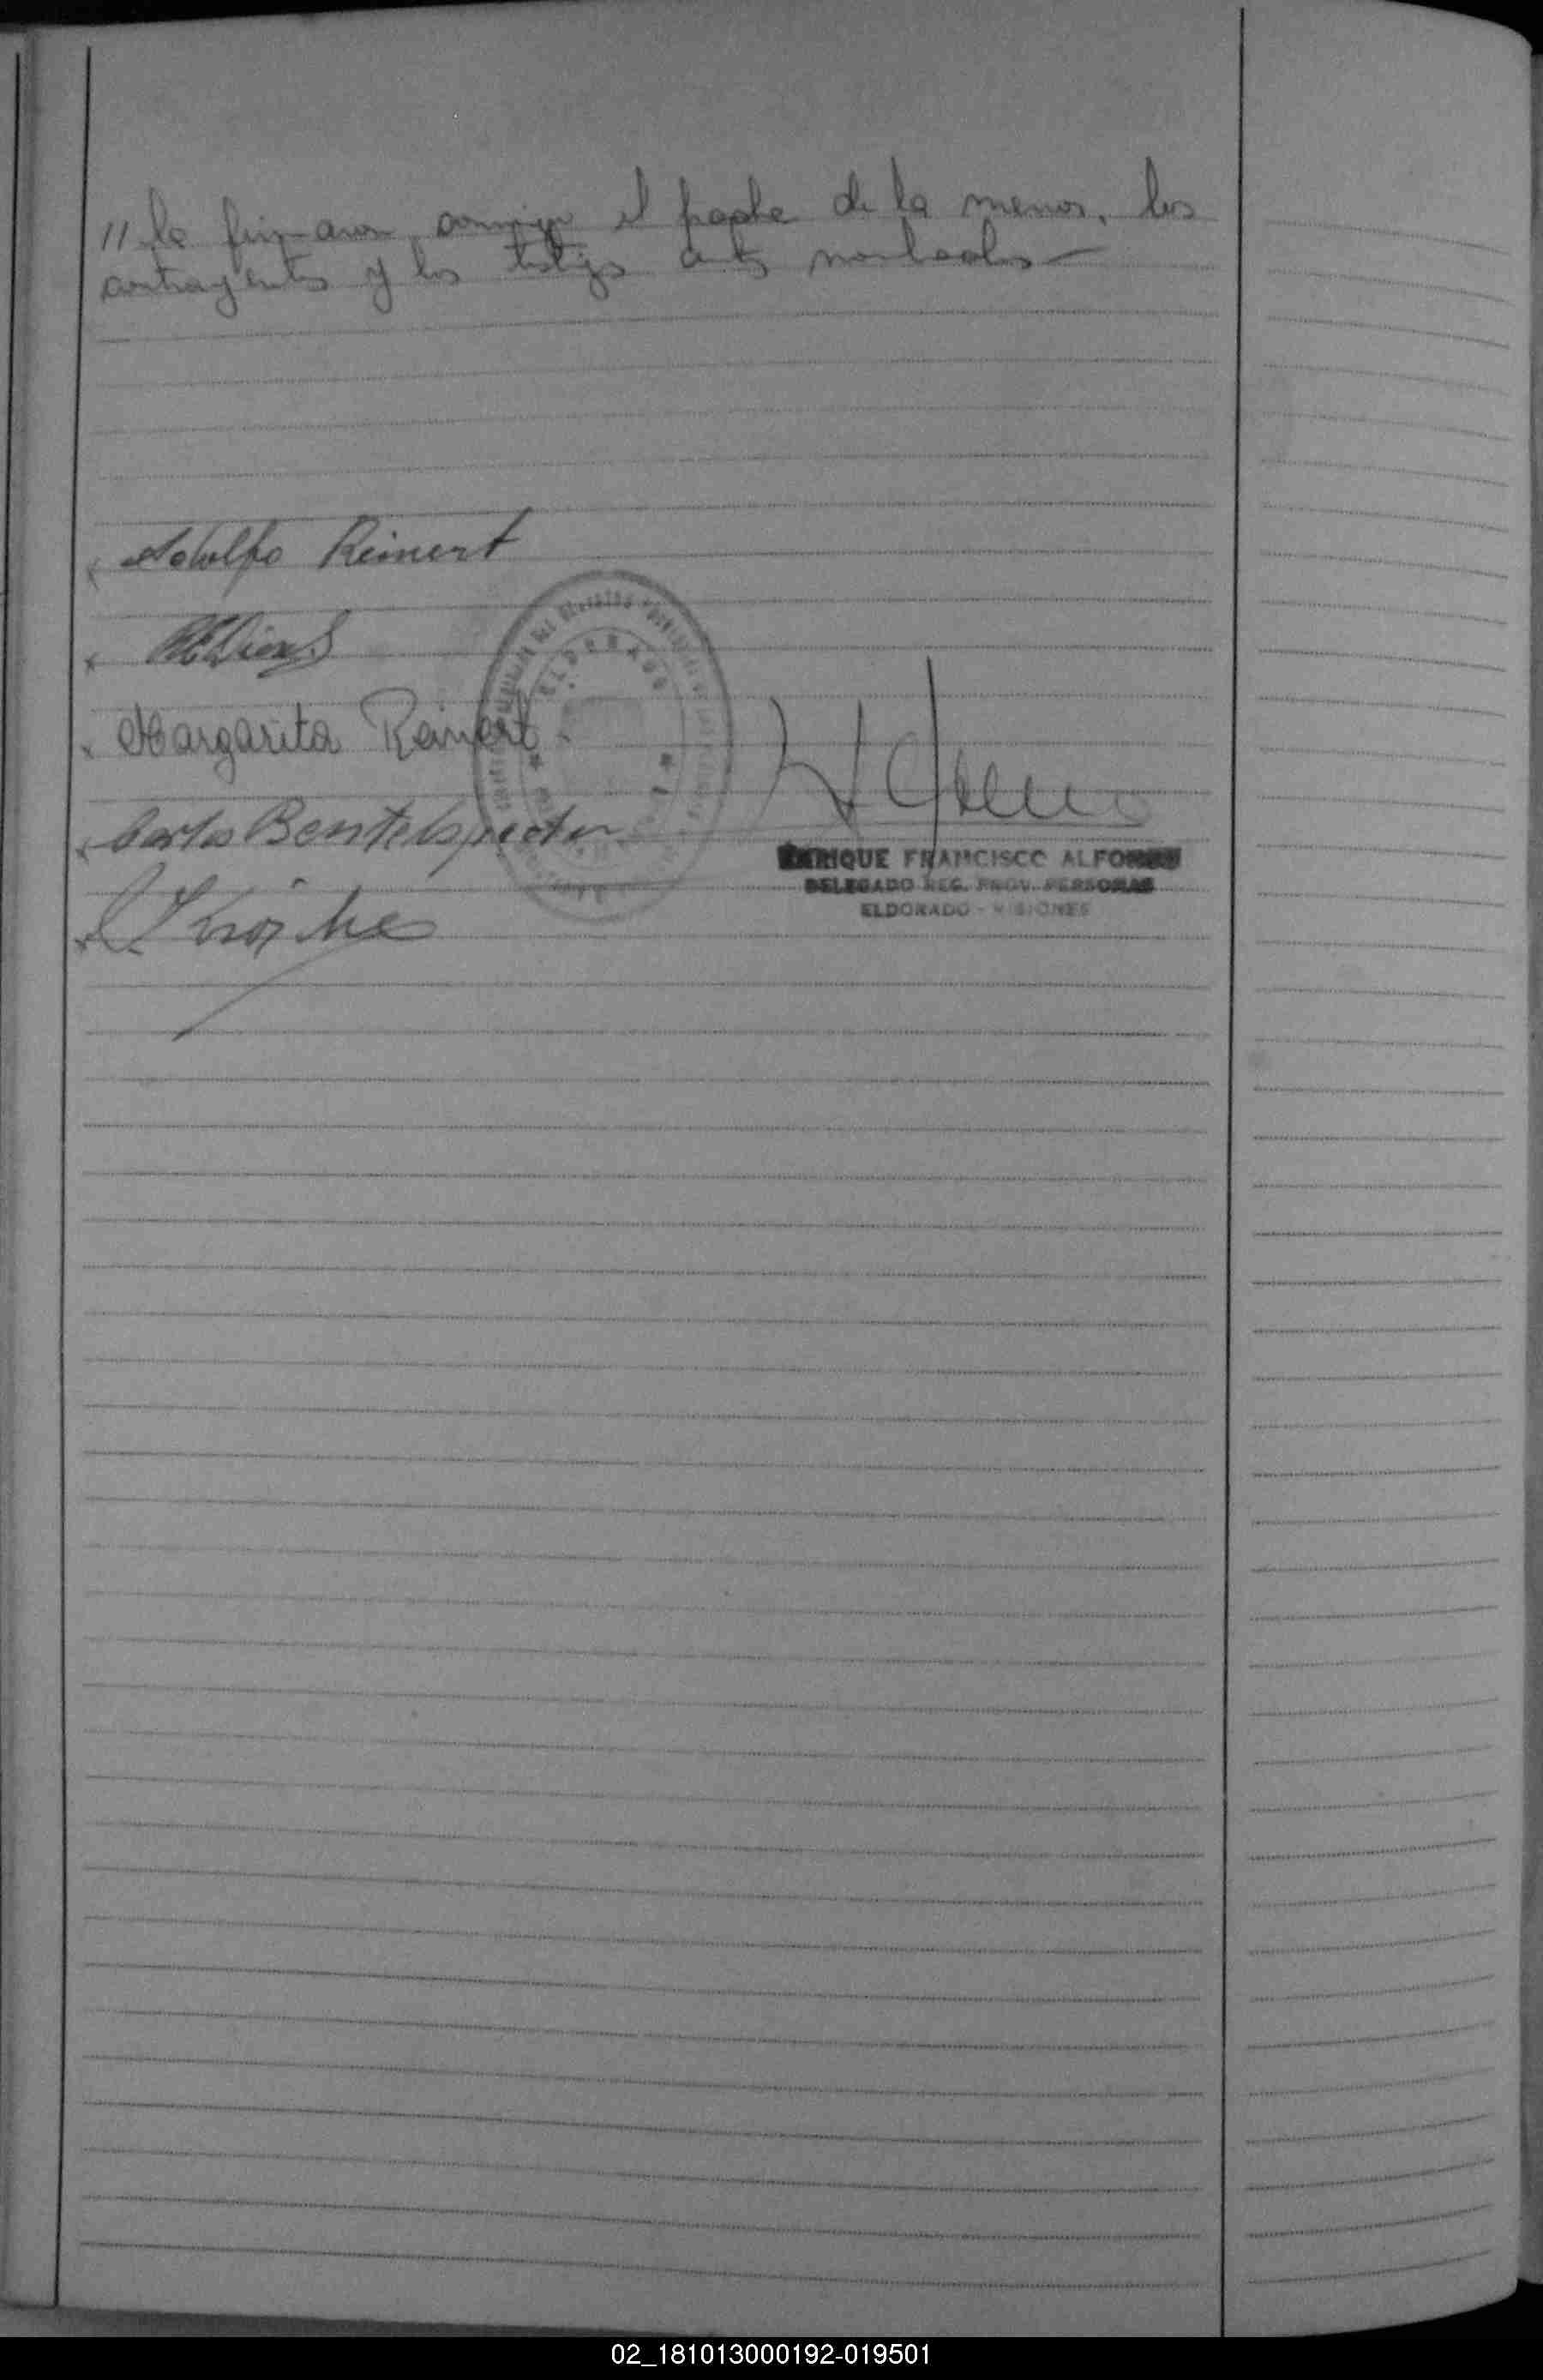 // la firmaron conmigo el padre de la menor, los
contrayentes y los testigos antes nombrados—
Adolfo Reinert
Margarita Reinert
Carlos Bentelspacher
ELDORADO
ENRIQUE FRANCISCO ALFONSO
DELEGADO REG. PROV. PERSONAS
ELDORADO - MISIONES
02_181013000192-019501